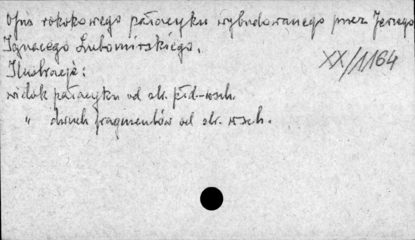 Opis rokokowego pałacyku wybudowanego przez Jerzego
Ignacego Lubomirskiego.
XX/1164
Ilustracje:
widok pałacyku od str. płd-wsch.
" dwóch fragmentów od str. wsch.